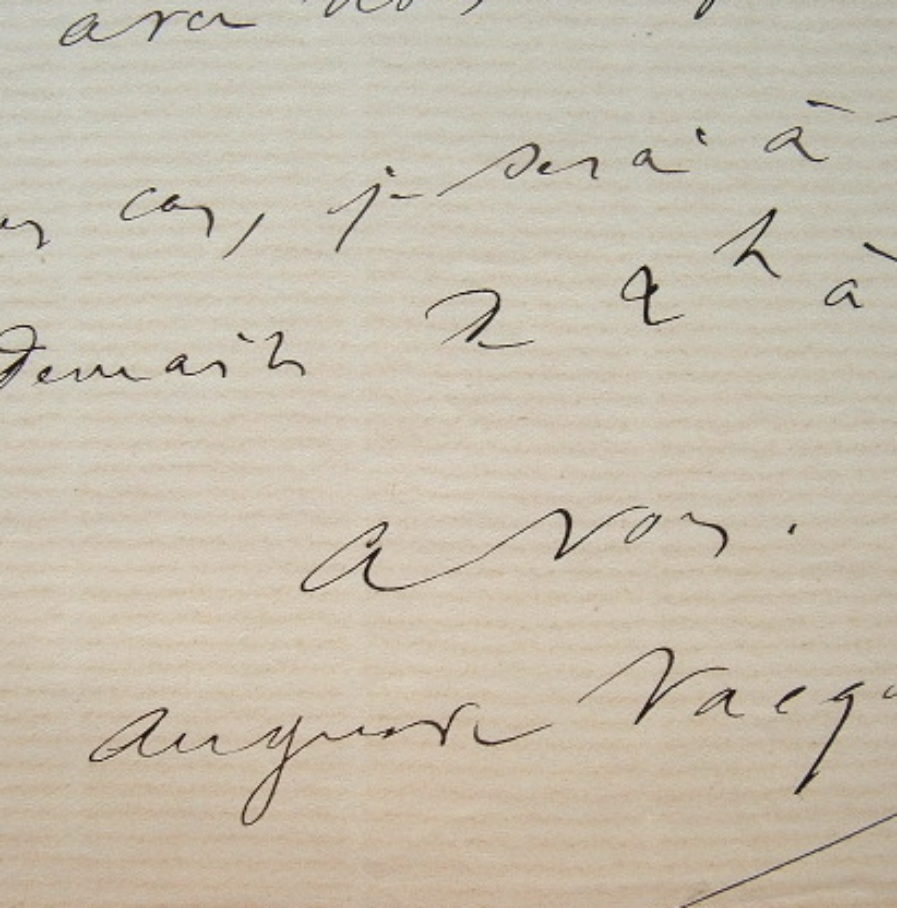 cas, je serai à
Demain de 2 h à
a vous.
Auguste Vacqu